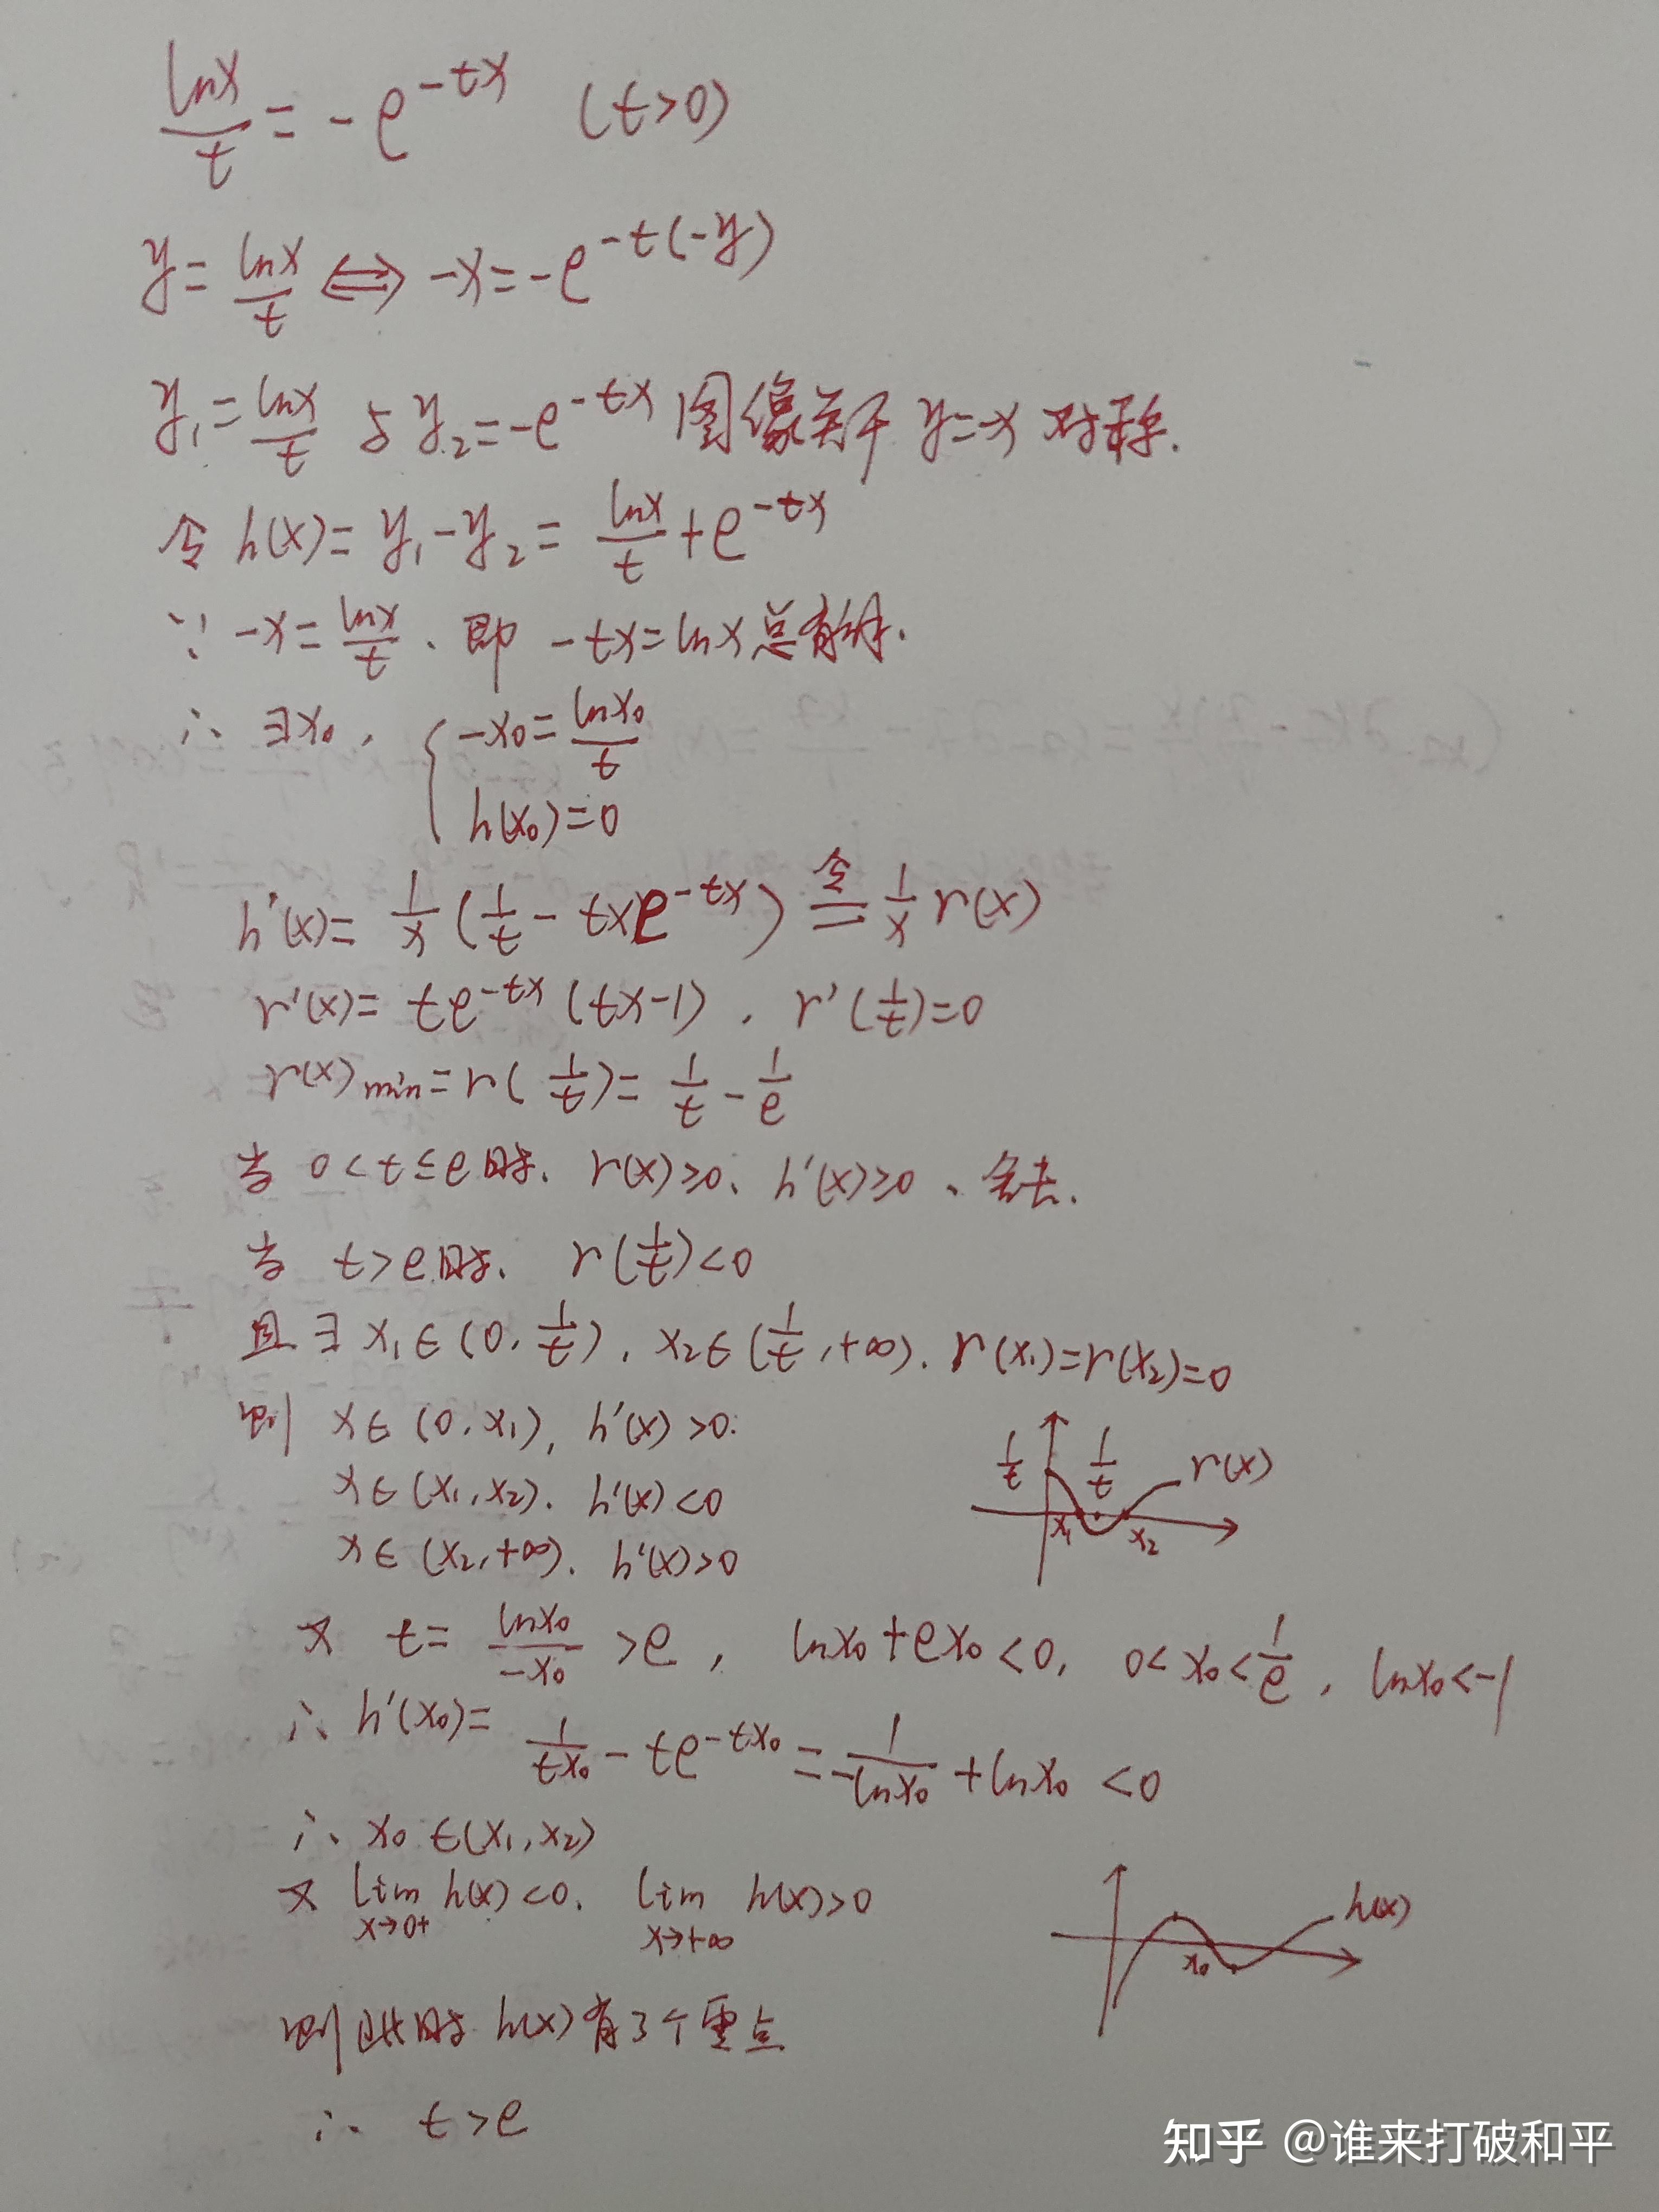 lnx/t = -e^{-tx} (t>0)
y = lnx/t ⟺ -x = -e^{-t(-y)}
y₁ = lnx/t 与 y₂ = -e^{-tx} 图像关于 y=-x 对称.
令 h(x) = y₁ - y₂ = lnx/t + e^{-tx}
∵ -x = lnx/t、即 -tx = lnx 总有解.
∴ ∃x₀, { -x₀ = lnx₀/t
h(x₀) = 0
h'(x) = 1/x (1/t - tx e^{-tx}) 令= 1/x r(x)
r'(x) = te^{-tx} (tx-1), r'(1/t) = 0
r(x)min = r(1/t) = 1/t - 1/e
当 0<t≤e时、r(x)≥0、h'(x)≥0、舍去.
当 t>e时、r(1/t)<0
且 ∃ x₁∈(0, 1/t), x₂∈(1/t, +∞). r(x₁)=r(x₂)=0
则 x∈(0, x₁), h'(x)>0.
x∈(x₁, x₂). h'(x)<0
x∈(x₂, +∞). h'(x)>0
1/t 1/t r(x)
x₁ x₂
又 t = lnx₀/-x₀ > e, lnx₀+ex₀<0, 0<x₀<1/e, lnx₀<-1
∴ h'(x₀) = 1/tx₀ - te^{-tx₀} = -1/lnx₀ + lnx₀ < 0
∴ x₀∈(x₁, x₂)
又 lim x→0+ h(x)<0. lim x→+∞ h(x)>0
h(x)
x₀
则此时 h(x) 有3个零点
∴ t>e
知乎 @谁来打破和平